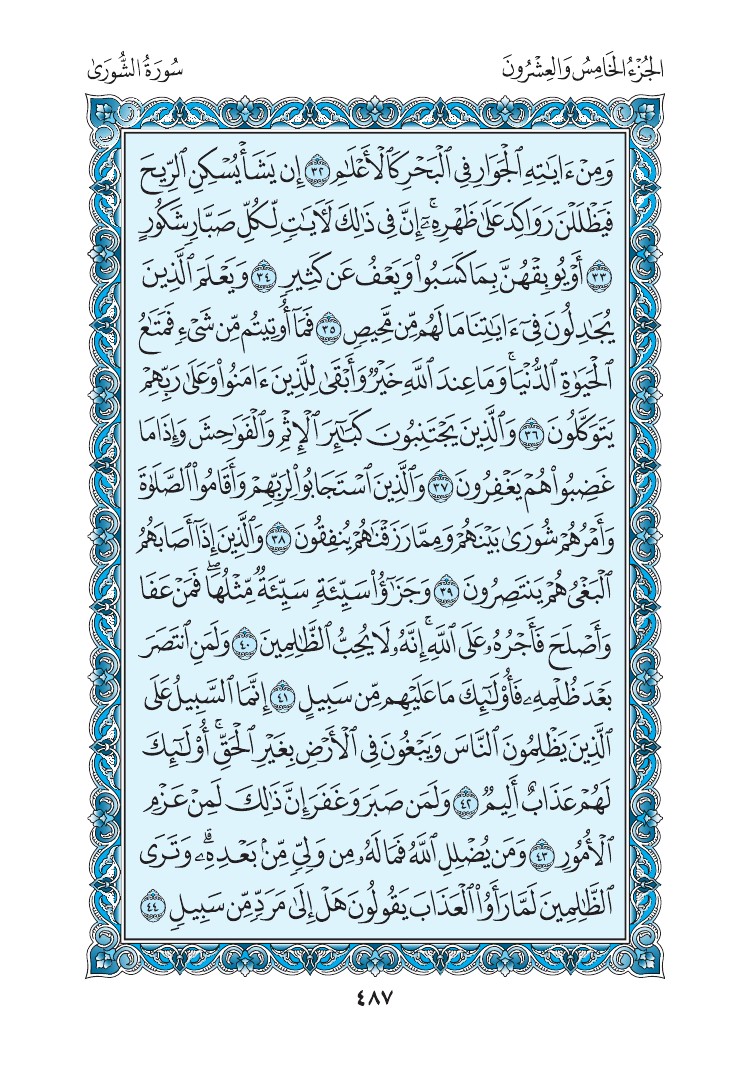 الجُزْءُ الخَامِسُ وَالعِشْرُونَ سُورَةُ الشُّورَىٰ
وَمِنْ ءَايَٰتِهِ ٱلْجَوَارِ فِى ٱلْبَحْرِ كَٱلْأَعْلَٰمِ ٣٢ إِن يَشَأْ يُسْكِنِ ٱلرِّيحَ
فَيَظْلَلْنَ رَوَاكِدَ عَلَىٰ ظَهْرِهِۦٓ ۚ إِنَّ فِى ذَٰلِكَ لَءَايَٰتٍ لِّكُلِّ صَبَّارٍ شَكُورٍ
٣٣ أَوْ يُوبِقْهُنَّ بِمَا كَسَبُوا۟ وَيَعْفُ عَن كَثِيرٍ ٣٤ وَيَعْلَمَ ٱلَّذِينَ
يُجَٰدِلُونَ فِىٓ ءَايَٰتِنَا مَا لَهُم مِّن مَّحِيصٍ ٣٥ فَمَآ أُوتِيتُم مِّن شَىْءٍ فَمَتَٰعُ
ٱلْحَيَوٰةِ ٱلدُّنْيَا ۚ وَمَا عِندَ ٱللَّهِ خَيْرٌ وَأَبْقَىٰ لِلَّذِينَ ءَامَنُوا۟ وَعَلَىٰ رَبِّهِمْ
يَتَوَكَّلُونَ ٣٦ وَٱلَّذِينَ يَجْتَنِبُونَ كَبَٰٓئِرَ ٱلْإِثْمِ وَٱلْفَوَٰحِشَ وَإِذَا مَا
غَضِبُوا۟ هُمْ يَغْفِرُونَ ٣٧ وَٱلَّذِينَ ٱسْتَجَابُوا۟ لِرَبِّهِمْ وَأَقَامُوا۟ ٱلصَّلَوٰةَ
وَأَمْرُهُمْ شُورَىٰ بَيْنَهُمْ وَمِمَّا رَزَقْنَٰهُمْ يُنفِقُونَ ٣٨ وَٱلَّذِينَ إِذَآ أَصَابَهُمُ
ٱلْبَغْىُ هُمْ يَنتَصِرُونَ ٣٩ وَجَزَٰٓؤُا۟ سَيِّئَةٍ سَيِّئَةٌ مِّثْلُهَا ۖ فَمَنْ عَفَا
وَأَصْلَحَ فَأَجْرُهُۥ عَلَى ٱللَّهِ ۚ إِنَّهُۥ لَا يُحِبُّ ٱلظَّٰلِمِينَ ٤٠ وَلَمَنِ ٱنتَصَرَ
بَعْدَ ظُلْمِهِۦ فَأُو۟لَٰٓئِكَ مَا عَلَيْهِم مِّن سَبِيلٍ ٤١ إِنَّمَا ٱلسَّبِيلُ عَلَى
ٱلَّذِينَ يَظْلِمُونَ ٱلنَّاسَ وَيَبْغُونَ فِى ٱلْأَرْضِ بِغَيْرِ ٱلْحَقِّ ۚ أُو۟لَٰٓئِكَ
لَهُمْ عَذَابٌ أَلِيمٌ ٤٢ وَلَمَن صَبَرَ وَغَفَرَ إِنَّ ذَٰلِكَ لَمِنْ عَزْمِ
ٱلْأُمُورِ ٤٣ وَمَن يُضْلِلِ ٱللَّهُ فَمَا لَهُۥ مِن وَلِىٍّ مِّنۢ بَعْدِهِۦ ۗ وَتَرَى
ٱلظَّٰلِمِينَ لَمَّا رَأَوُا۟ ٱلْعَذَابَ يَقُولُونَ هَلْ إِلَىٰ مَرَدٍّ مِّن سَبِيلٍ ٤٤
٤٨٧